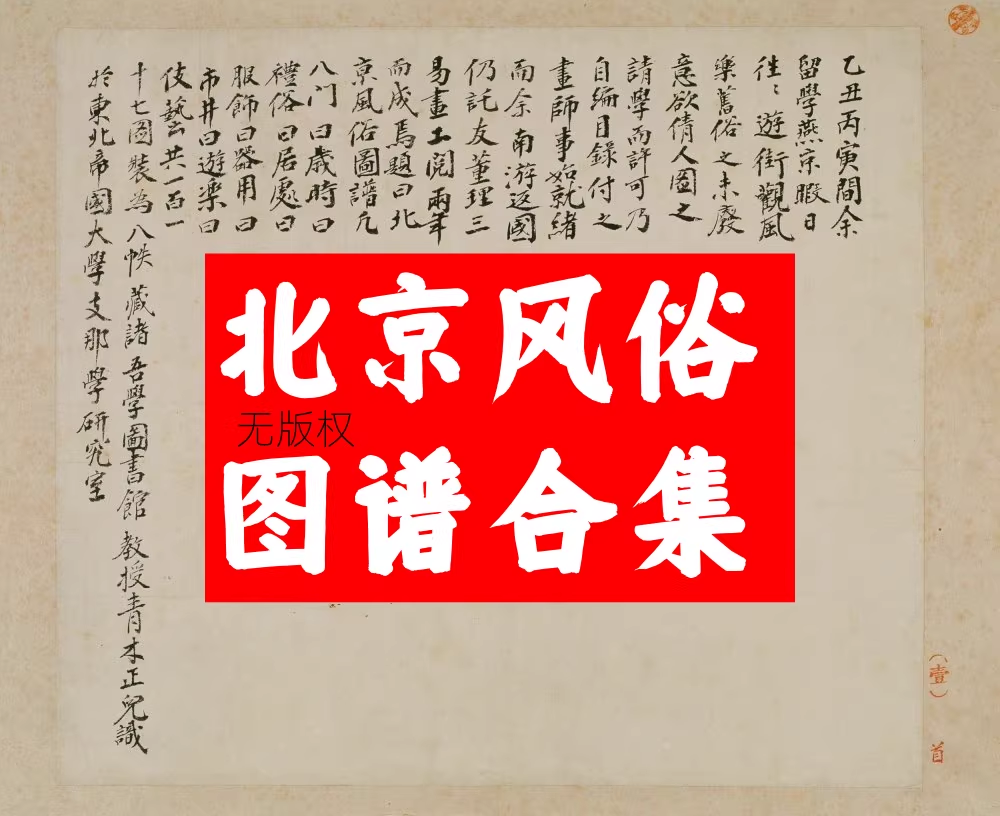 乙丑丙寅間余
留學燕京暇日
徃〻遊街觀風
樂舊俗之未廢
意欲倩人圖之
請學而許可乃
自編目錄付之
畫師事如就緒
而余南游返國
仍託友董理三
易畫工閲兩年
而成焉題曰北
京風俗圖譜凡
八门曰歲時曰
禮俗曰居處曰
服飾曰器用曰
市井曰遊樂曰
伎藝共一百一
十七圖裝為八帙藏諸吾學圖書館 教授青木正兒識
於東北帝國大學支那學研究室
北京风俗
无版权
图谱合集
（壹）
首